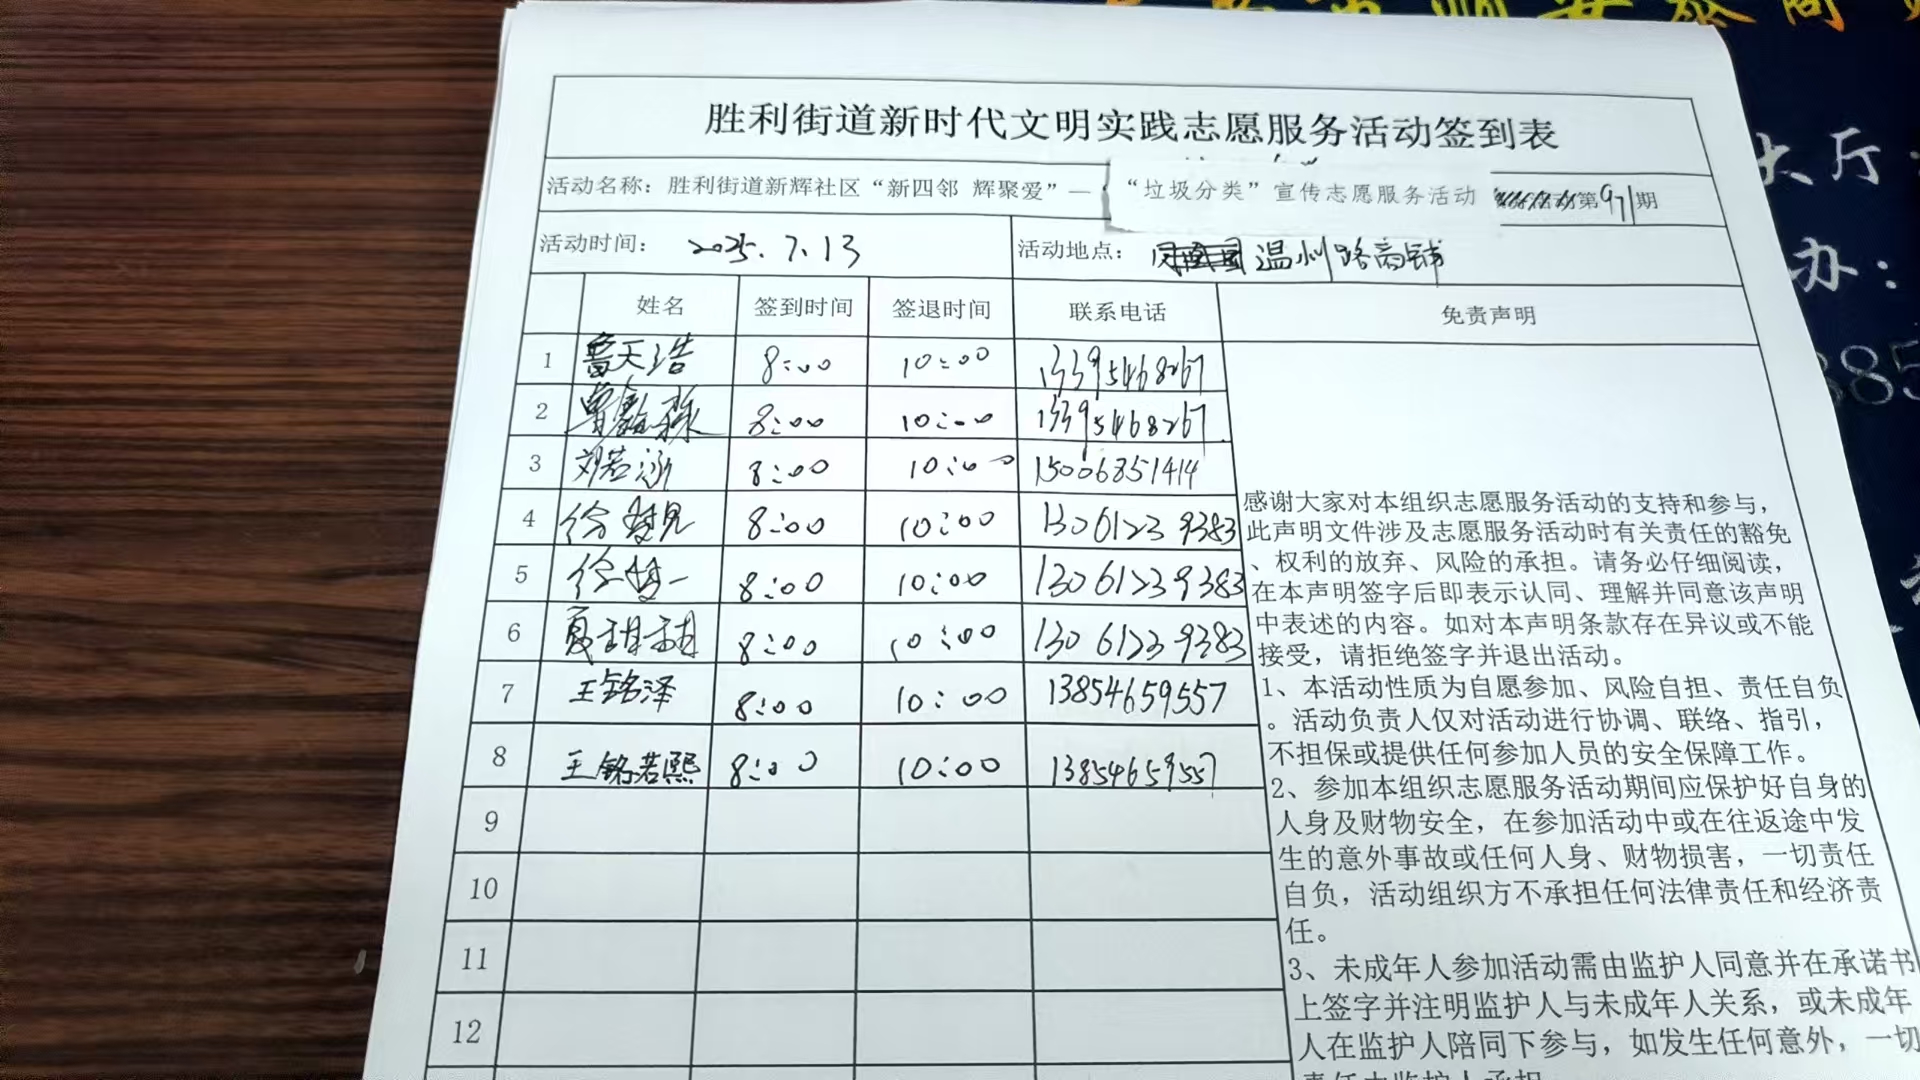 胜利街道新时代文明实践志愿服务活动签到表
活动名称：胜利街道新辉社区“新四邻 辉聚爱”—“垃圾分类”宣传志愿服务活动 第971期
活动时间： 2025.7.13 活动地点： 温州路商铺
姓名 签到时间 签退时间 联系电话 免责声明
1 鲁天浩 8:00 10:00 13395468267
2 8:00 10:00 13395468267
3 刘若涵 8:00 10:00 15006851414
4 8:00 10:00 13061239383
5 8:00 10:00 13061239383
6 夏甜甜 8:00 10:00 13061239383
7 王铭泽 8:00 10:00 13854659557
8 王铭若熙 8:00 10:00 13854659557
9
10
11
12
感谢大家对本组织志愿服务活动的支持和参与，
此声明文件涉及志愿服务活动时有关责任的豁免
、权利的放弃、风险的承担。请务必仔细阅读，
在本声明签字后即表示认同、理解并同意该声明
中表述的内容。如对本声明条款存在异议或不能
接受，请拒绝签字并退出活动。
1、本活动性质为自愿参加、风险自担、责任自负
。活动负责人仅对活动进行协调、联络、指引，
不担保或提供任何参加人员的安全保障工作。
2、参加本组织志愿服务活动期间应保护好自身的
人身及财物安全，在参加活动中或在往返途中发
生的意外事故或任何人身、财物损害，一切责任
自负，活动组织方不承担任何法律责任和经济责
任。
3、未成年人参加活动需由监护人同意并在承诺书
上签字并注明监护人与未成年人关系，或未成年
人在监护人陪同下参与，如发生任何意外，一切
责任由监护人承担
大厅
办：
385